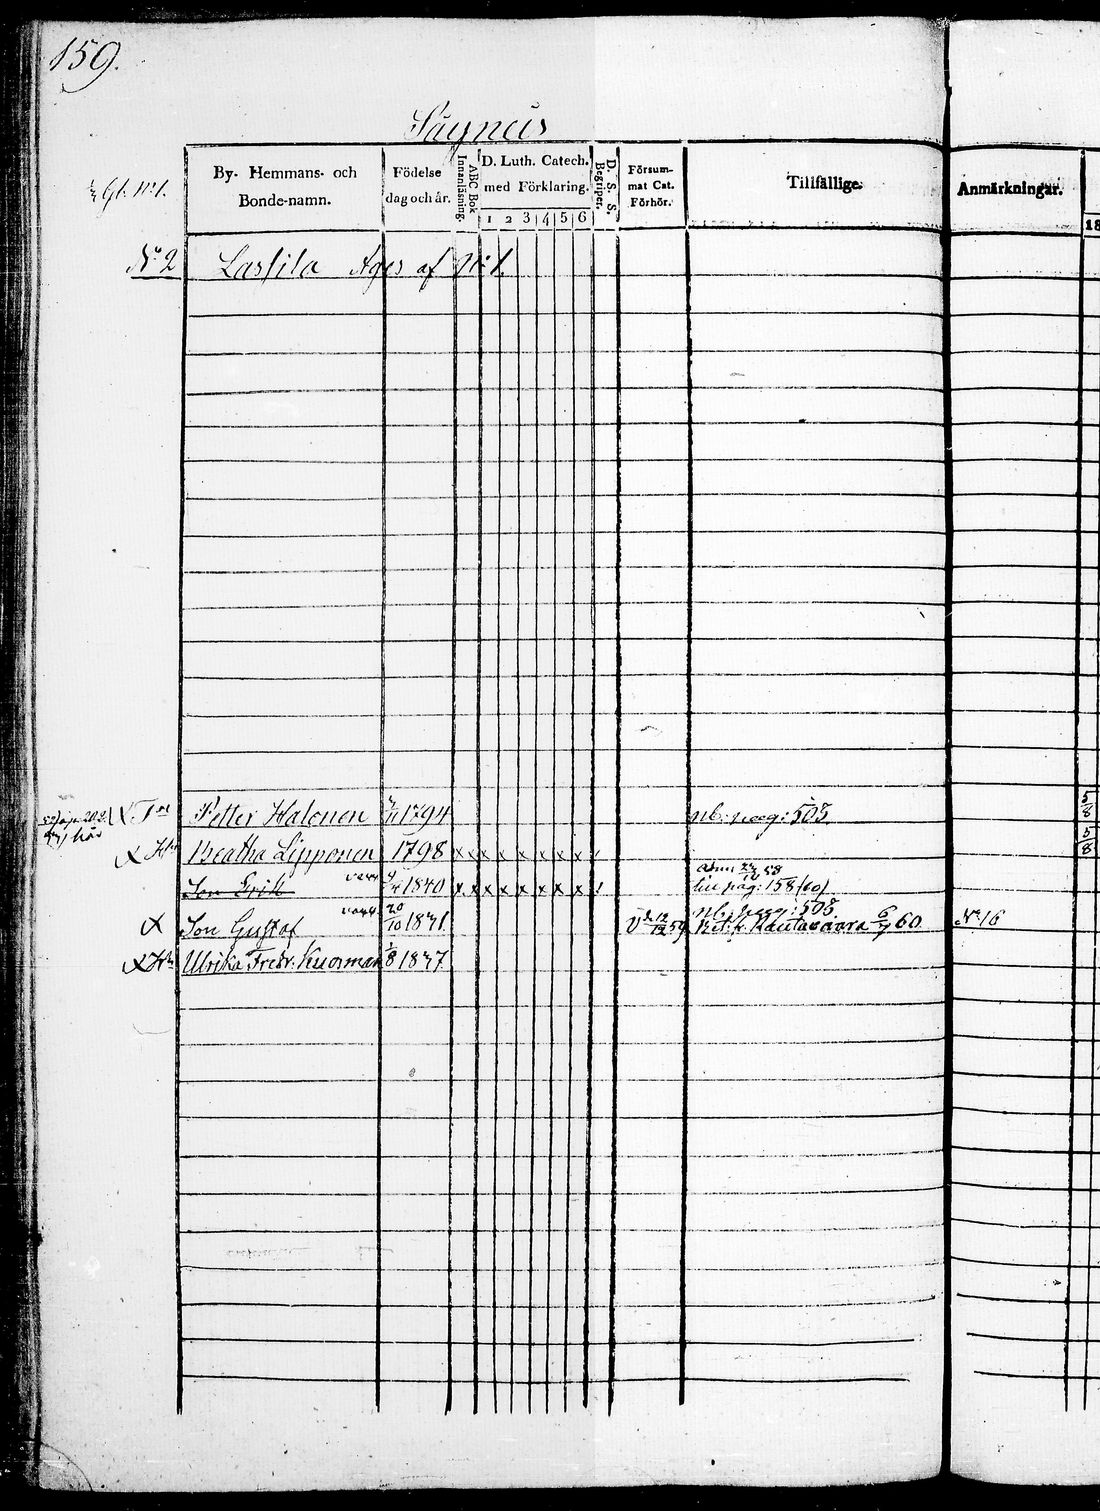 159.
Säyneis
By- Hemmans- och Bonde-namn.
Födelse dag och år.
ABC Bok Innanläsning.
D. Luth. Catech. med Förklaring.
1 2 3 4 5 6
D. S. S. Begriper.
Försum-mat Cat. Förhör.
Tillfällige.
Anmärkningar.
18
Gl. N:1.
N:2 Lassila Äges af N:1.
X Petter Halonen 1794 nb: pag: 503 5/8
X Beatha Lipponen 1798 x x x x x x x x 5/8
Son Erik 4/4 1840 x x x x x x x x 158 (60)
nb. pag: 503
X Son Gustaf 20/10 1841 59 Bet. t. Rautavaara 6/7 60 N:16
X Ulrika Fredr. Kuosman 1/8 1847